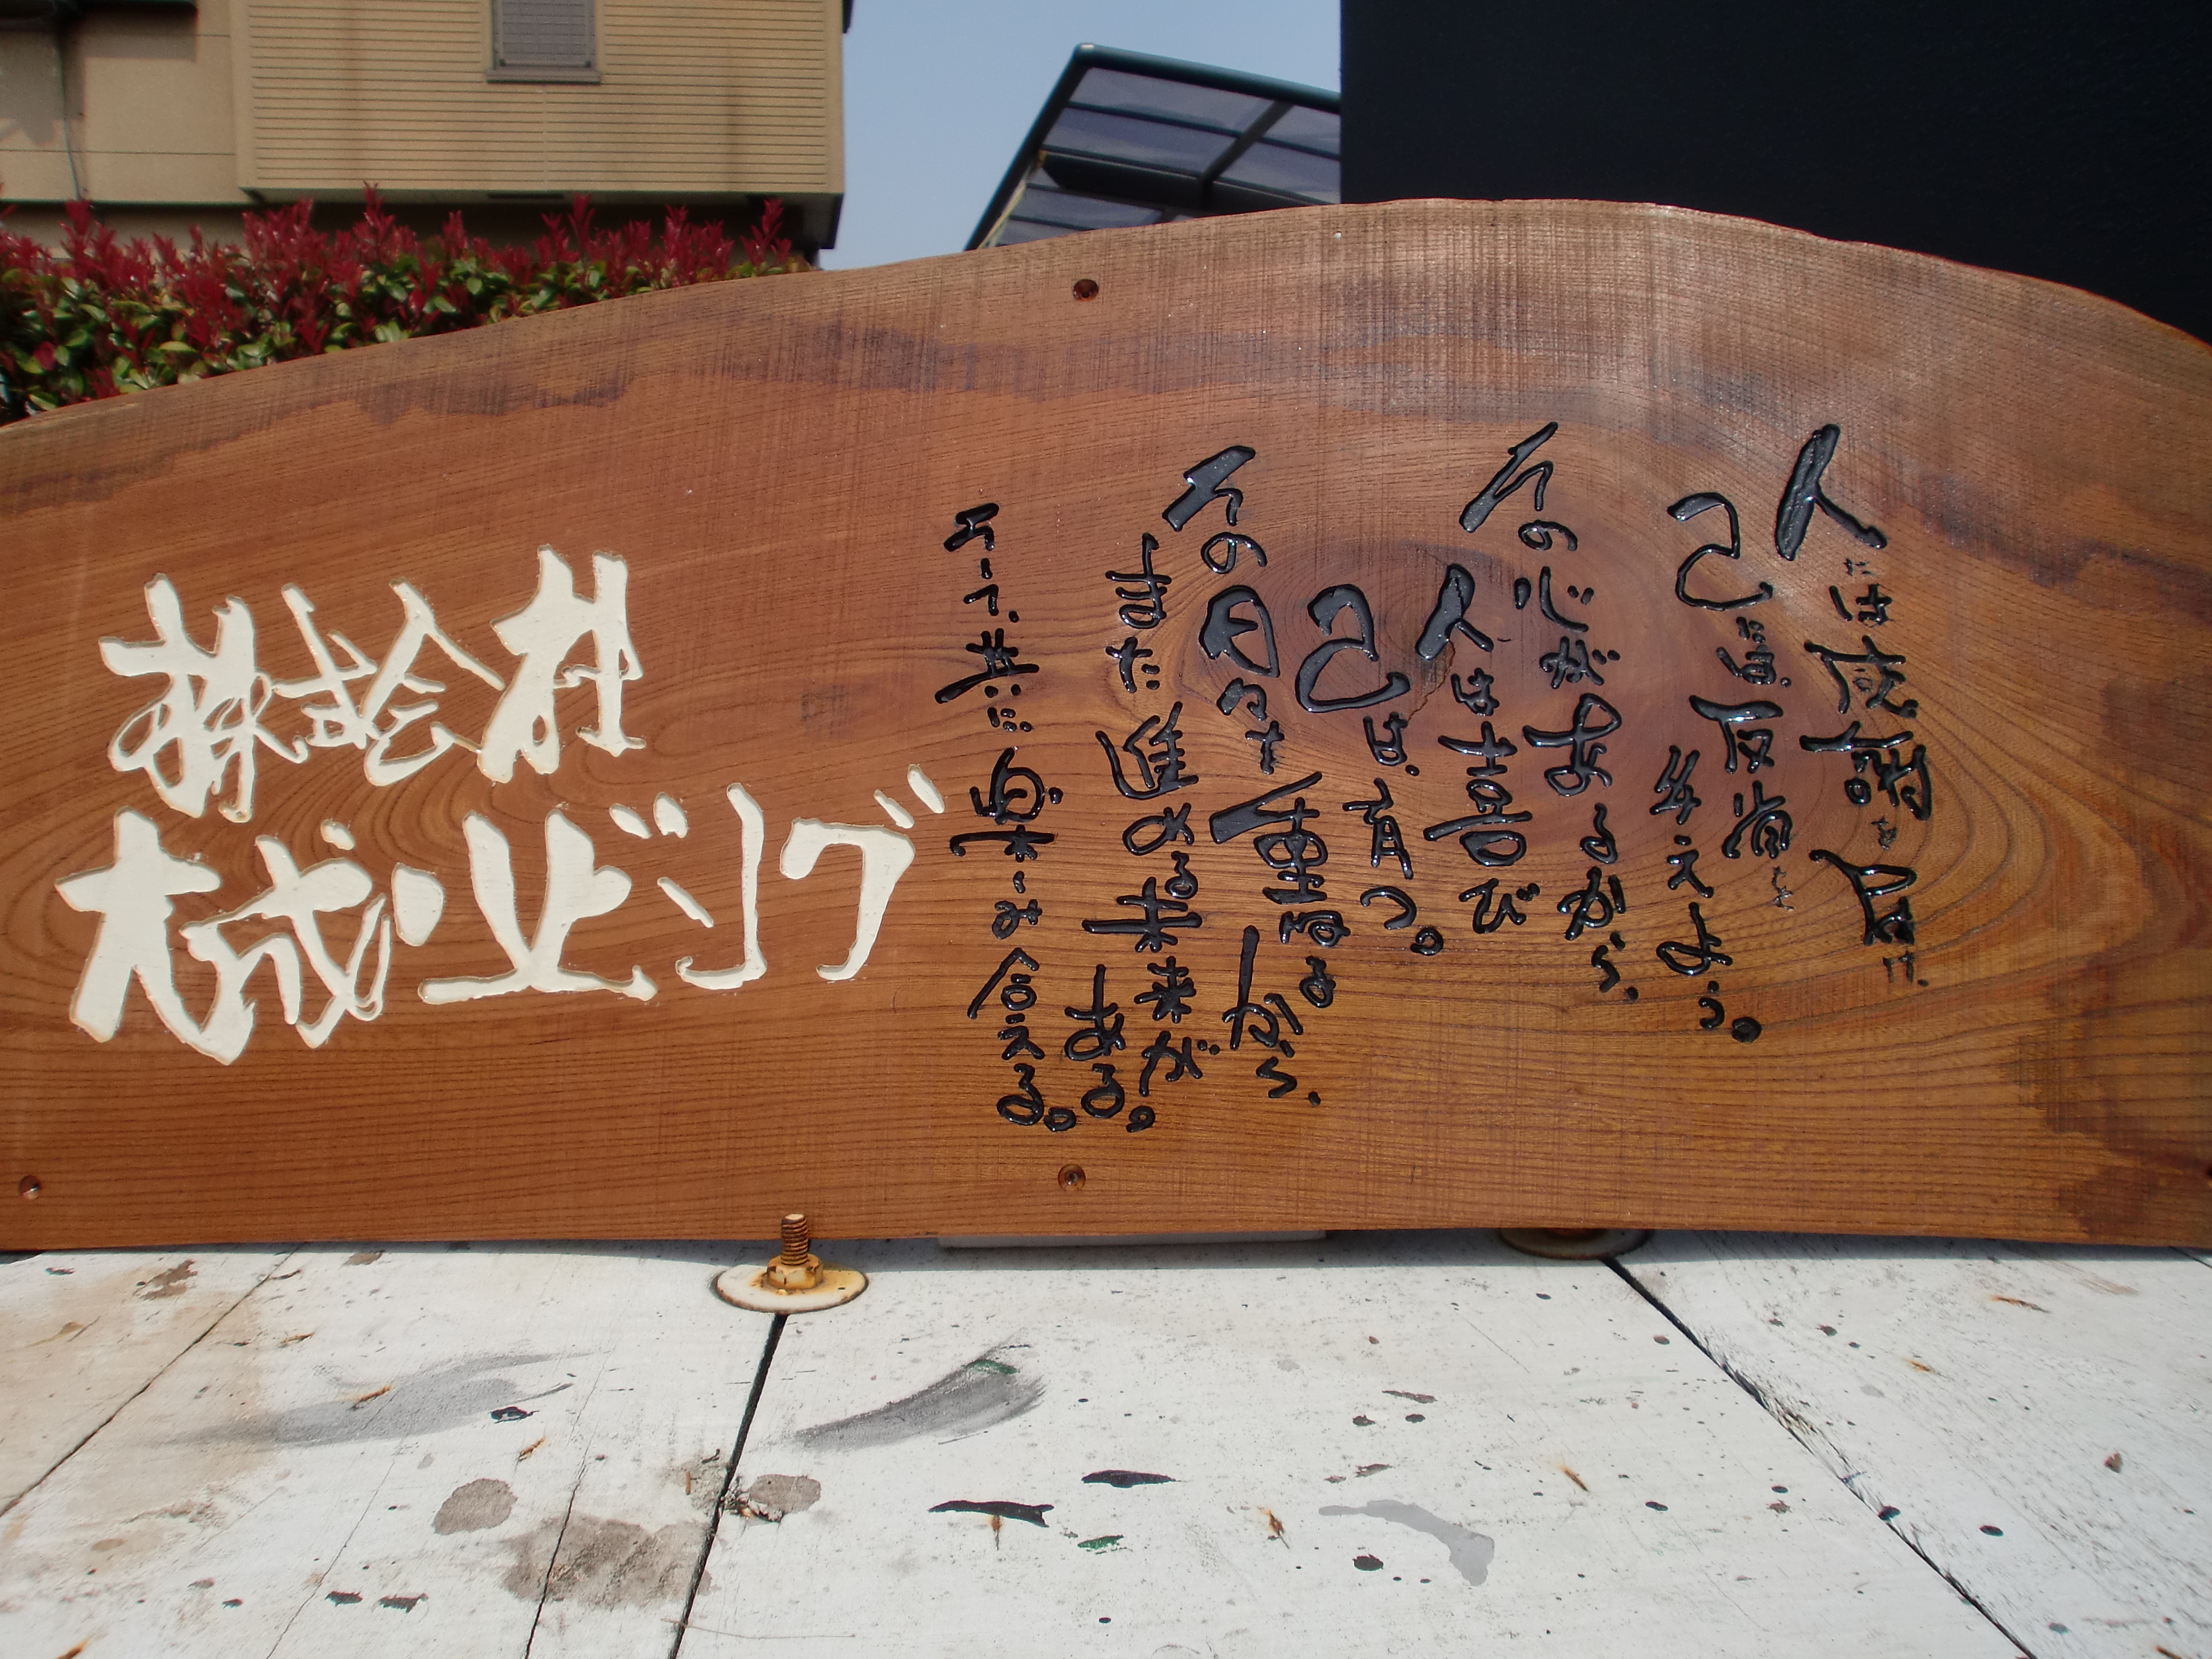 人には感謝を届け、
己には反省を
与えよう。
その心があるから、
人は喜び
己は、育つ。
その日々を重ねるから、
また進める未来が
ある。
そして、共に楽しみ合える。
株式会社